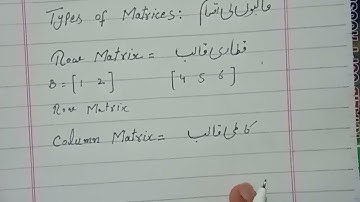 Types of Matrices: قالبوں کی اقسام
Row Matrix = قطاری قالب
B = [1 2] [4 5 6]
Row Matrix
Column Matrix = کالمی قالب